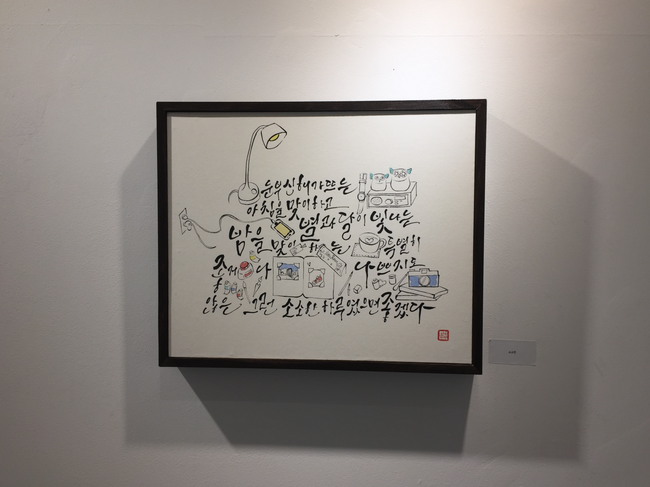 눈부신 해가 뜨는
아침을 맞이하고
별과 달이 빛나는
밤을 맞이하는 특별히
좋거나 나쁘지도
않은 그런 소소한 하루였으면 좋겠다